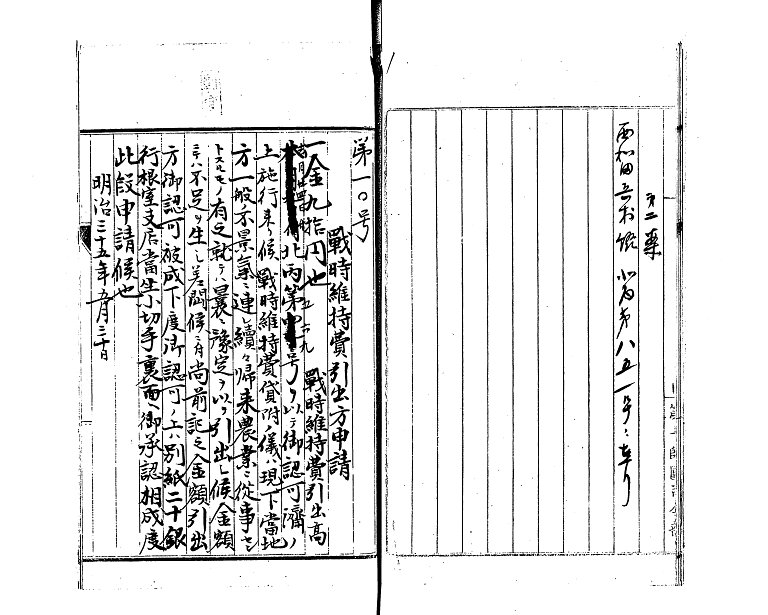 第二葉
西和田兵村
八五一号ニ
第一〇号
戰時維持費引出方申請
一金九拾円也 戰時維持費引出高
北丙第 号ヲ以テ御認可濟ノ
上施行来リ候戰時維持費貸附ノ儀ハ現下當地
方一般不景氣ニ連レ續々帰来農業ニ從事セン
トスルモノ有之就テハ曩ニ豫定ヲ以テ引出シ候金額
ニテハ不足ヲ生シ差閊候ニ付尚前記之金額引出
方御認可被成下度御認可ノ上ハ別紙二十銀
行根室支店當坐小切手裏面ヘ御承認相成度
此段申請候也
明治三十五年 月三十日